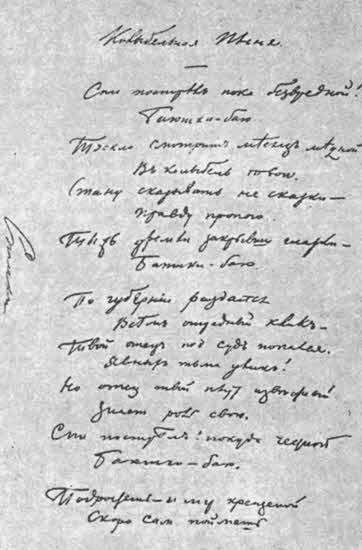 Колыбельная Пѣсня.
Спи пострѣлъ пока безвредной!
Баюшки-баю.
Тускло смотритъ мѣсяцъ мѣдной
Въ колыбель твою.
Стану сказывать не сказки –
Правду пропою.
Ты жъ дремли закрывши глазки –
Баюшки-баю.
По губерніи раздался
Всѣмъ отрадный кликъ –
Твой отецъ подъ судъ попался.
Явныхъ тьма уликъ!
Но отецъ твой плутъ извѣстный
Знаетъ роль свою.
Спи пострѣлъ покуда честной
Баюшки-баю.
Подростешь – и міръ крещеной
Скоро самъ поймешь